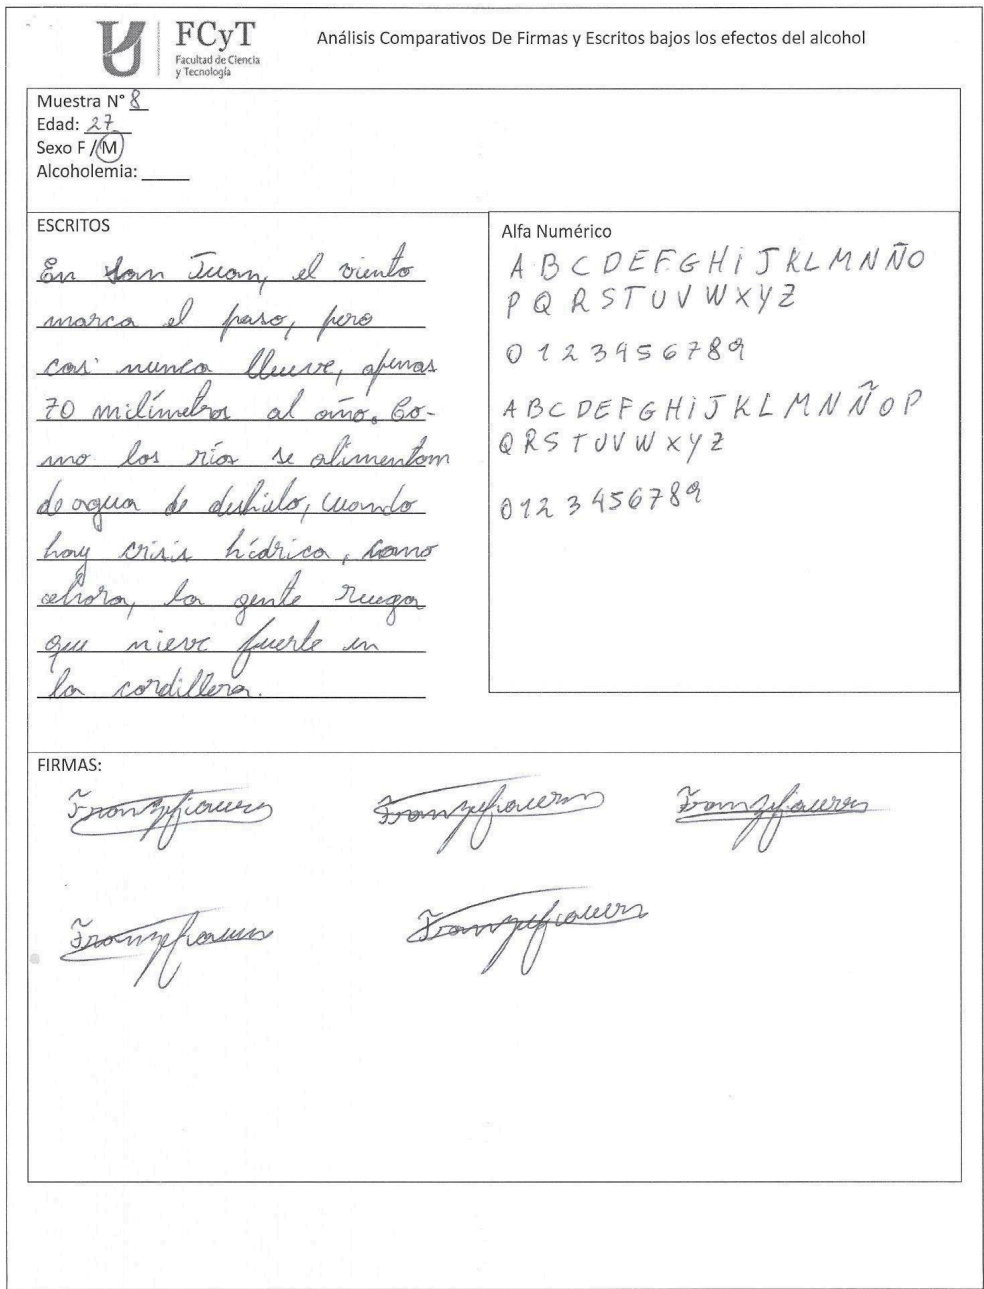 FCyT
Facultad de Ciencia
y Tecnología
Análisis Comparativos De Firmas y Escritos bajos los efectos del alcohol
Muestra N° 8
Edad: 27
Sexo F / M
Alcoholemia:
ESCRITOS
En San Juan, el viento
marca el paso, pero
casi nunca llueve, apenas
70 milímetros al año. Co-
mo los ríos se alimentan
de agua de deshielo, cuando
hay crisis hídrica, como
ahora, la gente ruega
que nieve fuerte en
la cordillera.
Alfa Numérico
A B C D E F G H i J K L M N Ñ O
P Q R S T U V W X Y Z
0 1 2 3 4 5 6 7 8 9
A B C D E F G H i J K L M N Ñ O P
Q R S T U V W X Y Z
0 1 2 3 4 5 6 7 8 9
FIRMAS: